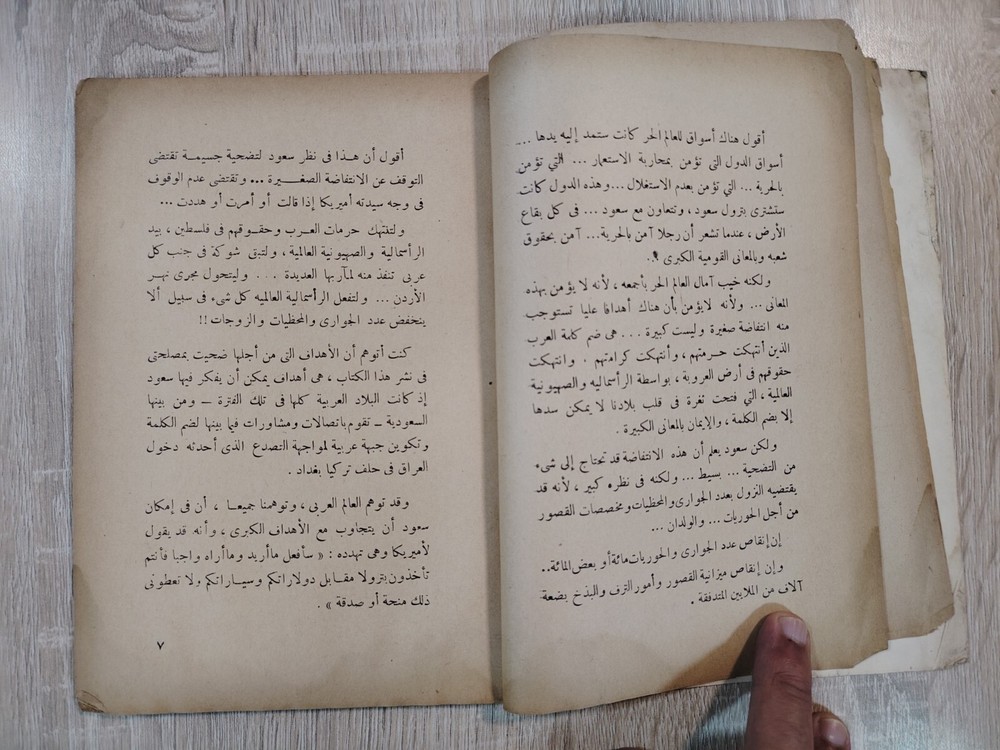 أقول هناك أسواق للعالم الحر كانت ستمد إليه يدها ...
أسواق الدول التى تؤمن بمحاربة الاستعمار ... التي تؤمن
بالحرية ... التي تؤمن بعدم الاستغلال ... وهذه الدول كانت
ستشترى بترول سعود ، وتتعاون مع سعود ... فى كل بقاع
الأرض ، عندما تشعر أن رجلا آمن بالحرية... آمن بحقوق
شعبه وبالمعانى القومية الكبرى .
ولكنه خيب آمال العالم الحر بأجمعه ، لأنه لا يؤمن بهذه
المعانى ... ولأنه لايؤمن بأن هناك أهدافا عليا تستوجب
منه انتفاضة صغيرة وليست كبيرة ... هى ضم كلمة العرب
الذين أنتهكت حرمتهم ، وأنتهكت كرامتهم . وانتهكت
حقوقهم فى أرض العروبة ، بواسطة الرأسماليه والصهيونية
العالمية ، التي فتحت ثغرة فى قلب بلادنا لا يمكن سدها
إلا بضم الكلمة ، والإيمان بالمعانى الكبيرة .
ولكن سعود يعلم أن هذه الانتفاضة قد تحتاج إلى شىء
من التضحية ... بسيط ... ولكنه فى نظره كبير ، لأنه قد
يقتضيه النزول بعدد الجوارى والمحظيات ومخصصات القصور
من أجل الحوريات ... والولدان ...
إن إنقاص عدد الجوارى والحوريات مائة أو بعض المائة ..
وإن إنقاص ميزانية القصور وأمور الترف والبذخ بضعة
آلاف من الملايين المتدفقة .
أقول أن هذا فى نظر سعود لتضحية جسيمة تقتضى
التوقف عن الانتفاضة الصغيرة ... وتقتضى عدم الوقوف
فى وجه سيدته أميريكا إذا قالت أو أمرت أو هددت ...
ولتنتهك حرمات العرب وحقوقهم فى فلسطين ، بيد
الرأسمالية والصهيونية العالمية ، ولتبق شوكة فى جنب كل
عربى تنفذ منه لمآربها العديدة ... وليتحول مجرى نهر
الأردن ... ولتفعل الرأسمالية العالميه كل شىء فى سبيل ألا
ينخفض عدد الجوارى والمحظيات والزوجات !!
كنت أتوهم أن الأهداف التى من أجلها ضحيت بمصلحتى
فى نشر هذا الكتاب ، هى أهداف يمكن أن يفكر فيها سعود
إذ كانت البلاد العربية كلها فى تلك الفترة – ومن بينها
السعودية – تقوم باتصالات ومشاورات فيما بينها لضم الكلمة
وتكوين جبهة عربية لمواجهة التصدع الذى أحدثه دخول
العراق فى حلف تركيا بغداد .
وقد توهم العالم العربى ، وتوهمنا جميعا ، أن فى إمكان
سعود أن يتجاوب مع الأهداف الكبرى ، وأنه قد يقول
لأميريكا وهى تهدده : « سأفعل ماأريد وماأراه واجبا فأنتم
تأخذون بترولا مقابل دولاراتكم وسياراتكم ولا تعطونى
ذلك منحة أو صدقة » .
٧